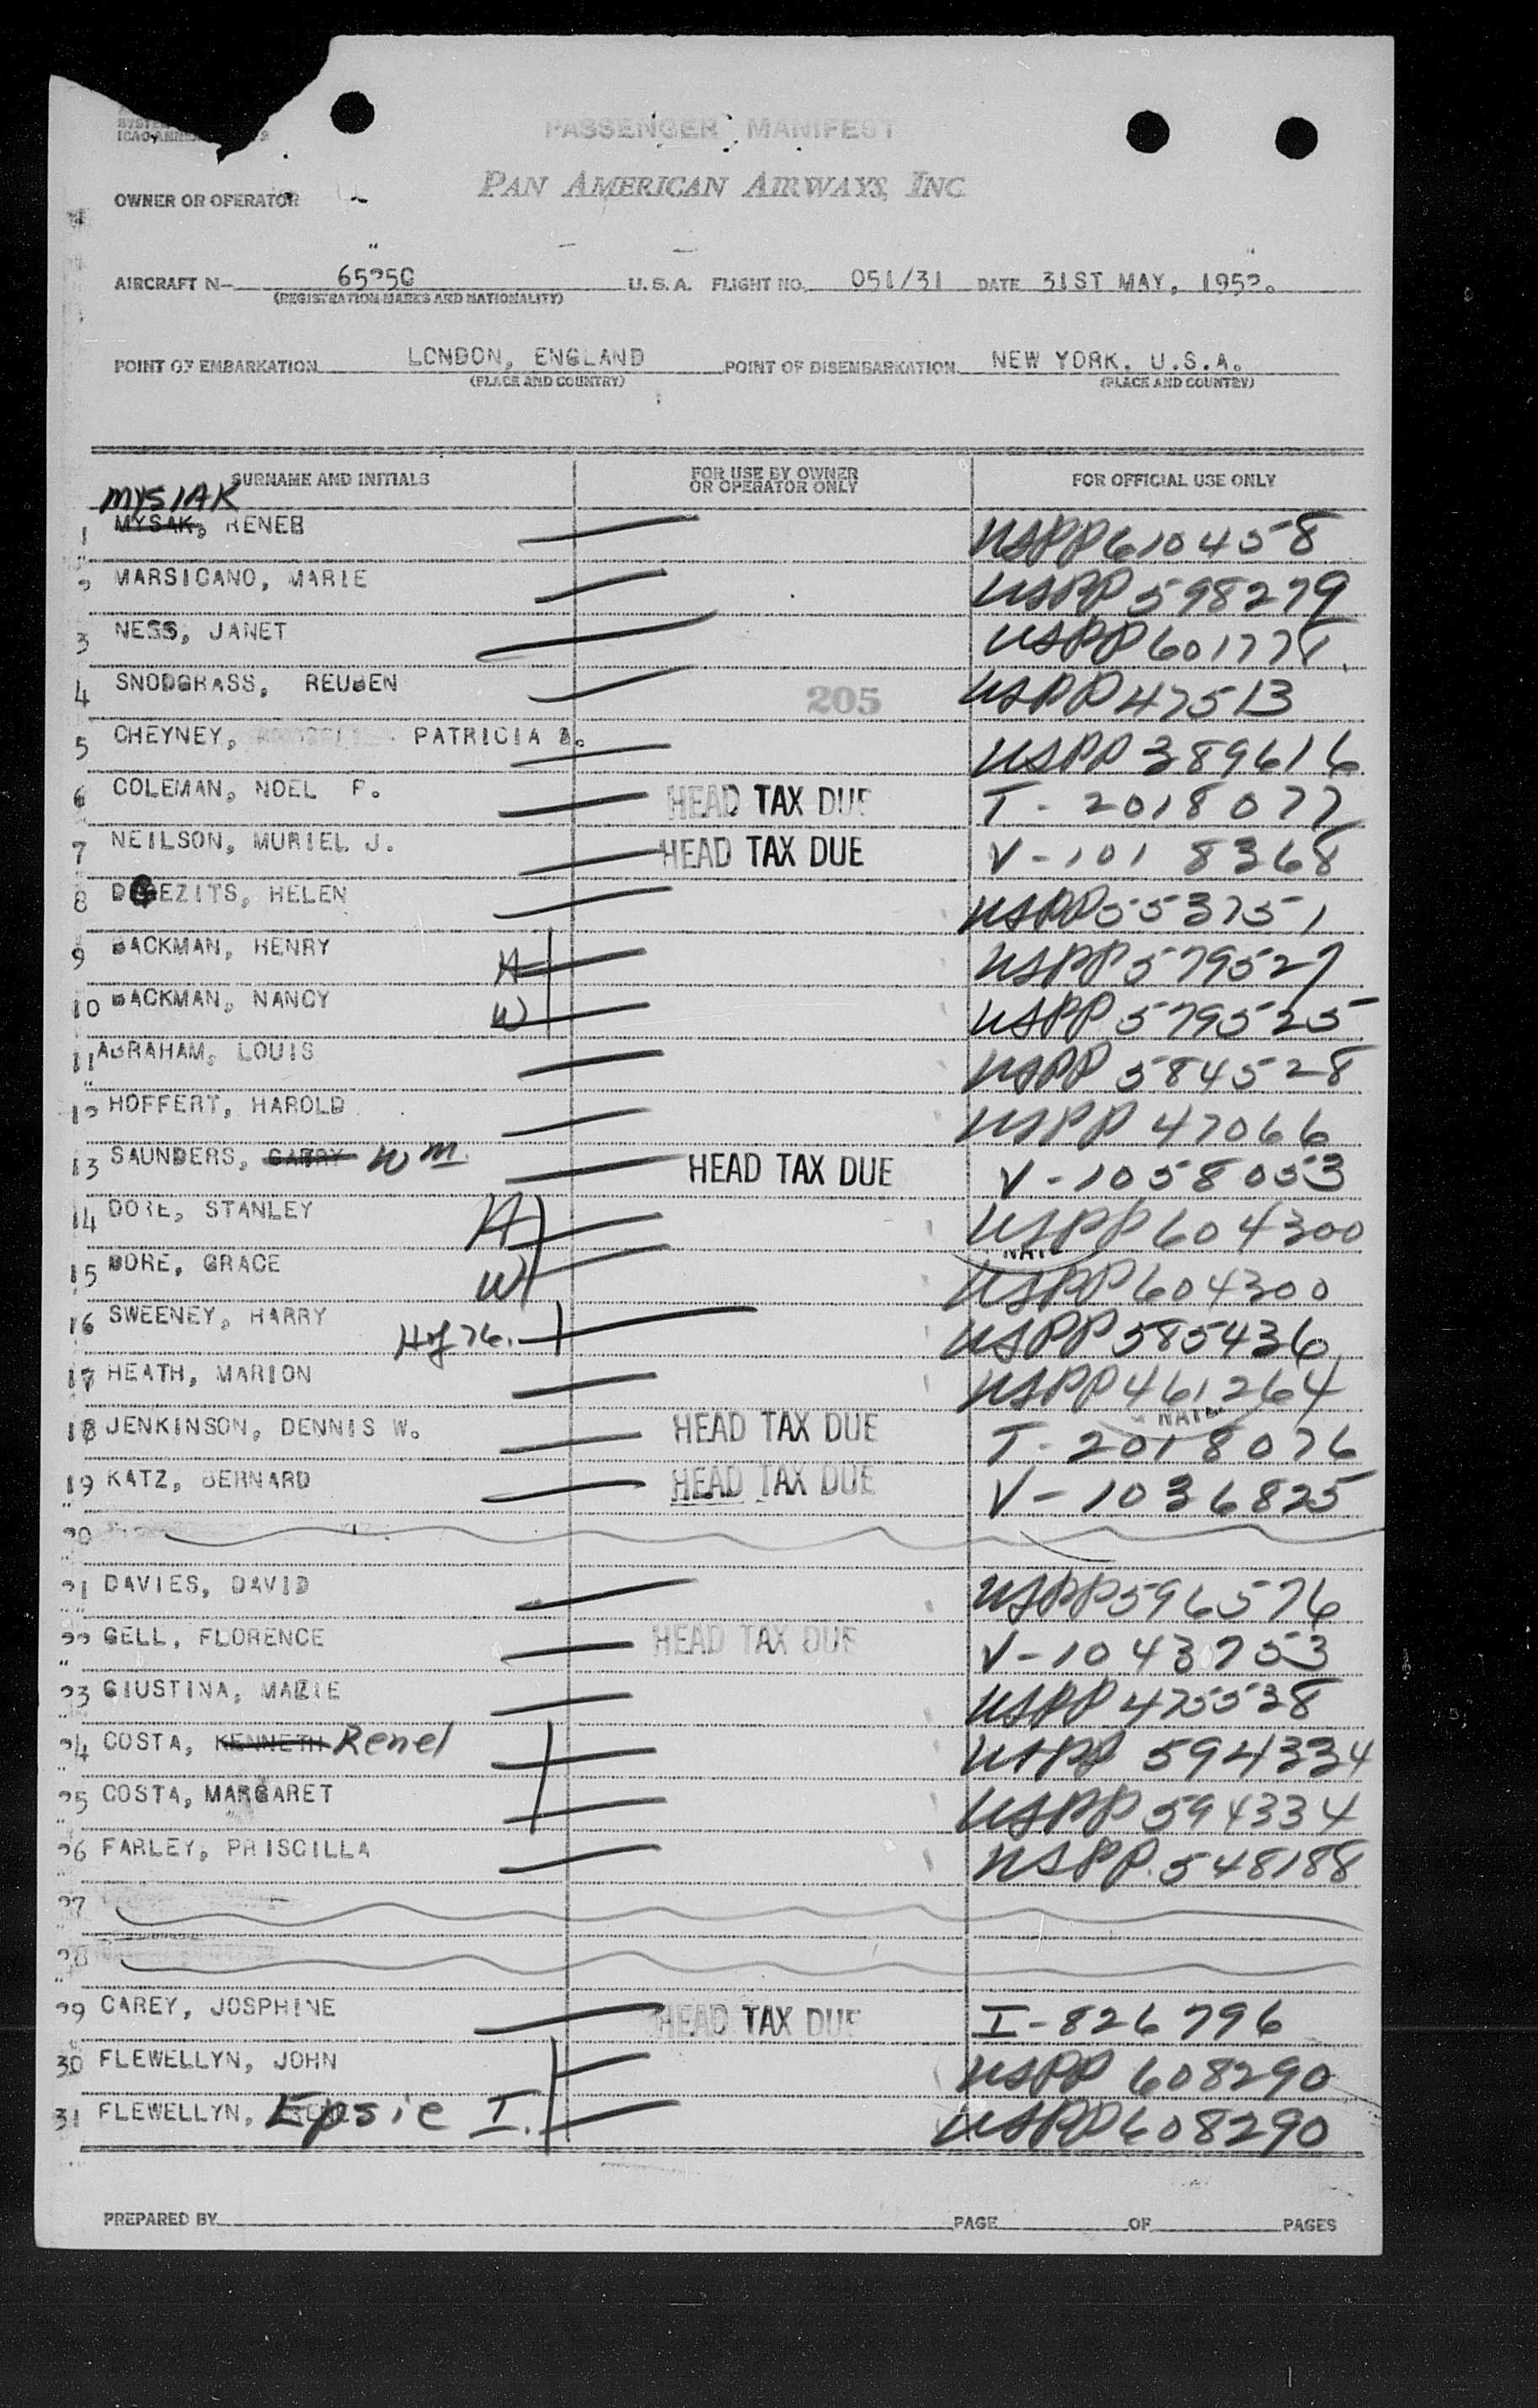 PASSENGER MANIFEST
PAN AMERICAN AIRWAYS, INC
OWNER OR OPERATOR
AIRCRAFT N- U.S.A. FLIGHT NO. 051/31 DATE 31ST MAY, 1952.
(REGISTRATION MARKS AND NATIONALITY)
POINT OF EMBARKATION LONDON, ENGLAND POINT OF DISEMBARKATION NEW YORK. U.S.A.
(PLACE AND COUNTRY) (PLACE AND COUNTRY)
SURNAME AND INITIALS FOR USE BY OWNER OR OPERATOR ONLY FOR OFFICIAL USE ONLY
MYSIAK
1 MYSAK, RENEB USPP 610458
2 MARSICANO, MARIE USPP 598279
3 NESS, JANET USPP 601778
4 SNODGRASS, REUBEN 205 USPP 47513
5 CHEYNEY, PATRICIA A. USPP 389616
6 COLEMAN, NOEL P. HEAD TAX DUE T-2018077
7 NEILSON, MURIEL J. HEAD TAX DUE V-1018368
8 DGEZITS, HELEN USPP 553751
9 BACKMAN, HENRY H USPP 579527
10 BACKMAN, NANCY W USPP 579525
11 ABRAHAM, LOUIS USPP 584528
12 HOFFERT, HAROLD USPP 47066
13 SAUNDERS, GARRY Wm HEAD TAX DUE V-1058053
14 DORE, STANLEY H USPP 604300
15 DORE, GRACE W USPP 604300
16 SWEENEY, HARRY USPP 585436
17 HEATH, MARION USPP 461264
18 JENKINSON, DENNIS W. HEAD TAX DUE T-2018076
19 KATZ, BERNARD HEAD TAX DUE V-1036825
20
21 DAVIES, DAVID USPP 596576
22 GELL, FLORENCE HEAD TAX DUE V-1043753
23 GIUSTINA, MAZIE USPP 475538
24 COSTA, KENNETH Renel USPP 594334
25 COSTA, MARGARET USPP 594334
26 FARLEY, PRISCILLA USPP 548188
27
28
29 CAREY, JOSPHINE HEAD TAX DUE I-826796
30 FLEWELLYN, JOHN USPP 608290
31 FLEWELLYN, Epsie I. USPP 608290
PREPARED BY PAGE OF PAGES